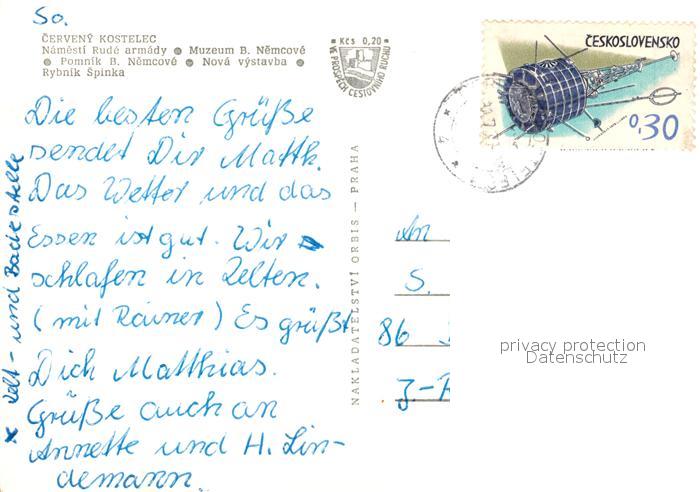 So.
ČERVENÝ KOSTELEC
Náměstí Rudé armády ● Muzeum B. Němcové
● Pomník B. Němcové ● Nová výstavba ●
Rybník Špinka
Kčs 0,20
VE PROSPĚCH CESTOVNÍHO RUCHU
ČESKOSLOVENSKO
0,30
Die besten Grüße
sendet Dir Matth.
Das Wetter und das
Essen ist gut. Wir
schlafen in Zelten.
(mit Rainer) Es grüßt
Dich Matthias.
Grüße auch an
Annette und H. Lin-
demann.
x Zelt- und Badestelle
NAKLADATELSTVÍ ORBIS – PRAHA
An
S.
86
privacy protection
Datenschutz